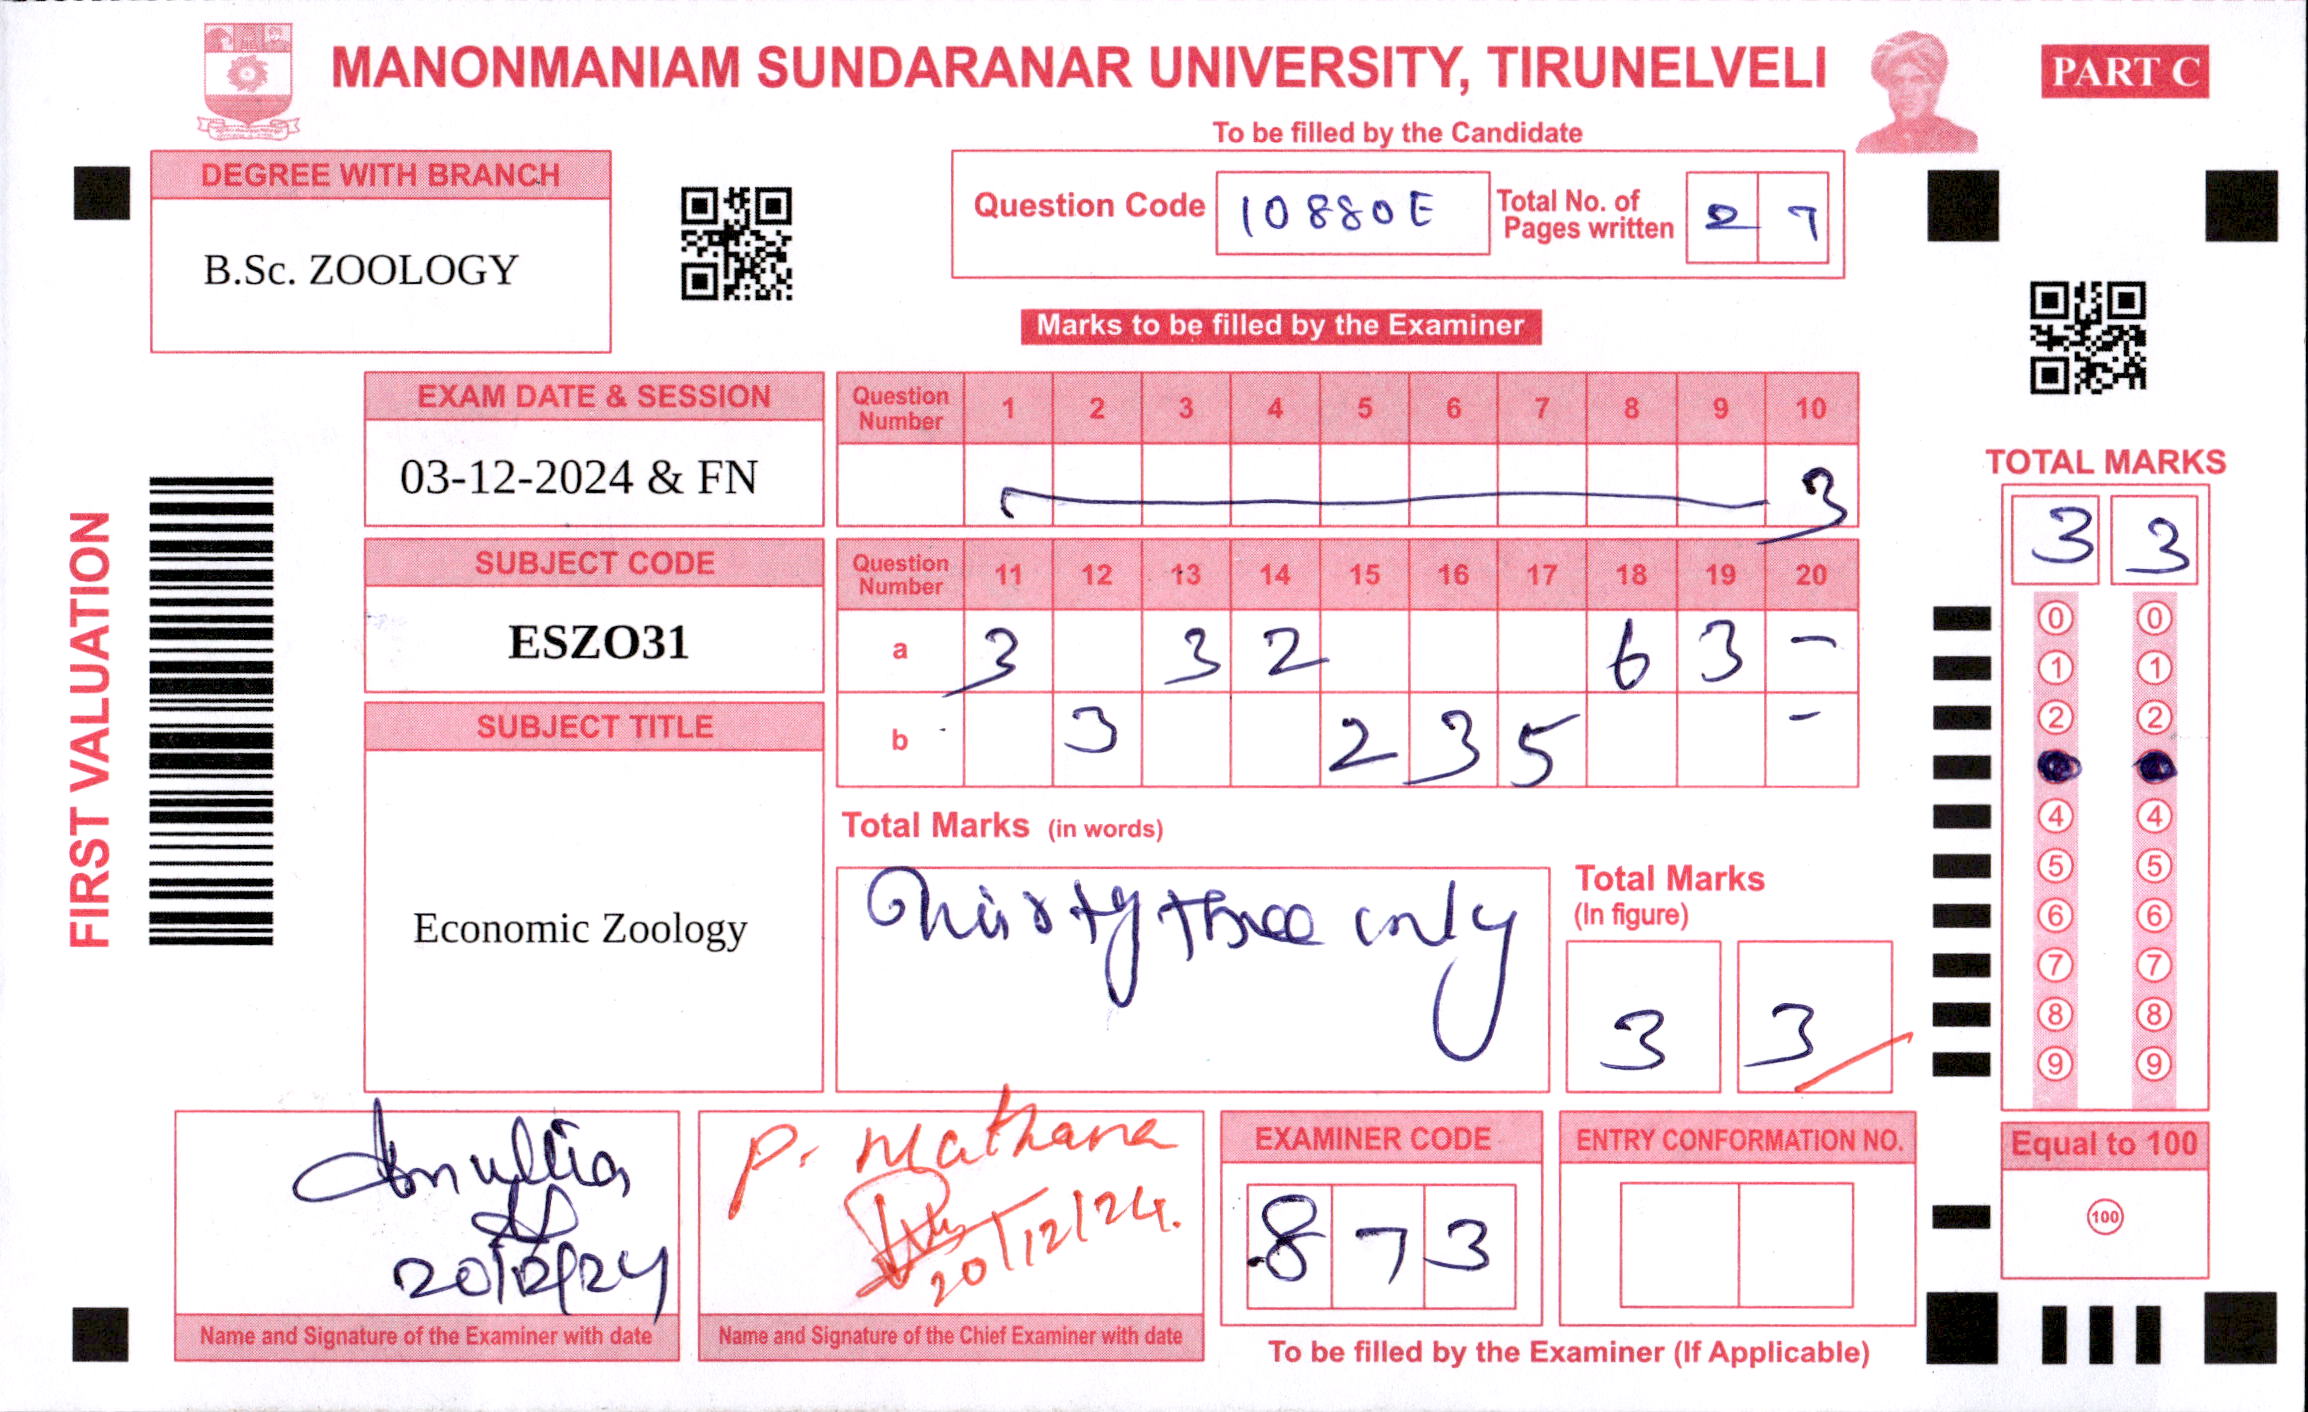 MANONMANIAM SUNDARANAR UNIVERSITY, TIRUNELVELI
PART C
To be filled by the Candidate
DEGREE WITH BRANCH
B.Sc. ZOOLOGY
Question Code 10880E Total No. of Pages written 27
Marks to be filled by the Examiner
EXAM DATE & SESSION
03-12-2024 & FN
Question Number 1 2 3 4 5 6 7 8 9 10
3
SUBJECT CODE
ESZO31
Question Number 11 12 13 14 15 16 17 18 19 20
a 3 3 2 6 3 -
b 3 2 3 5 -
SUBJECT TITLE
Economic Zoology
Total Marks (in words)
Thirty three only
Total Marks (In figure)
3 3
FIRST VALUATION
TOTAL MARKS
3 3
0 0
1 1
2 2
4 4
5 5
6 6
7 7
8 8
9 9
Equal to 100
100
20/12/24
Name and Signature of the Examiner with date
P. Mathana
20/12/24.
Name and Signature of the Chief Examiner with date
EXAMINER CODE
8 7 3
ENTRY CONFORMATION NO.
To be filled by the Examiner (If Applicable)